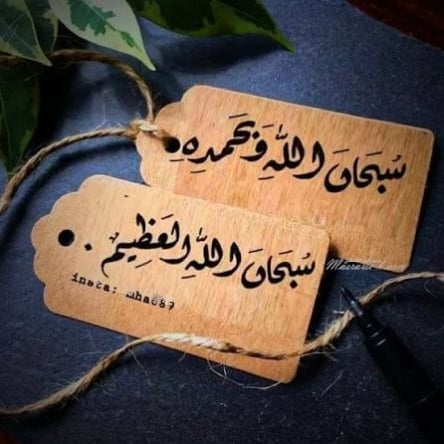 سُبَحَانَ اللّٰهِ وَبِحَمدِهِ
سُبَحَانَ اللّٰهِ العَظِيمْ .
insta: mha689